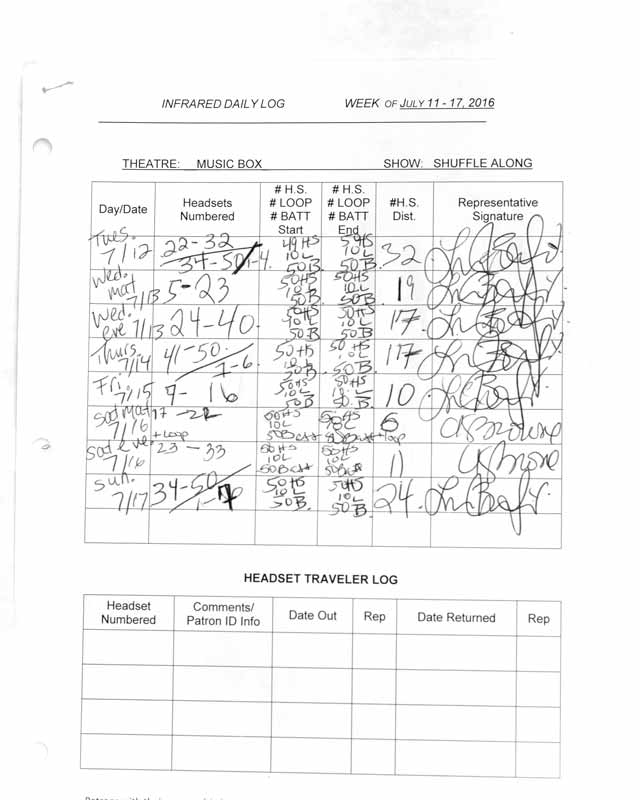 INFRARED DAILY LOG WEEK OF JULY 11 - 17, 2016
THEATRE: MUSIC BOX SHOW: SHUFFLE ALONG
Day/Date Headsets Numbered # H.S. # LOOP # BATT Start # H.S. # LOOP # BATT End #H.S. Dist. Representative Signature
Tues. 7/12 22-32 34-50/1-4 49 HS 10 L 50 B. 50 HS 10 L 50 B. 32
Wed. mat 7/13 5-23 50 HS 10 L 50 B. 50 HS 10 L 50 B. 19
Wed. eve 7/13 24-40. 50 HS 10 L 50 B 50 HS 10 L 50 B 17
Thurs. 7/14 41-50. 1-6 50 HS 10 L 50 B. 50 HS 10 L 50 B. 17
Fri. 7/15 7-16 50 HS 10 L 50 B 50 HS 50 B. 10
Sat Mat 7/16 17-22 + Loop 50 HS 10 L 50 Batt 50 HS 10 L 50 Batt 6 + loop
Sat eve 7/16 23-33 50 HS 10 L 50 Batt 50 HS 10 L 50 Batt 11
Sun. 7/17 34-50 50 HS 10 L 50 B. 50 HS 10 L 50 B. 24
HEADSET TRAVELER LOG
Headset Numbered Comments/ Patron ID Info Date Out Rep Date Returned Rep